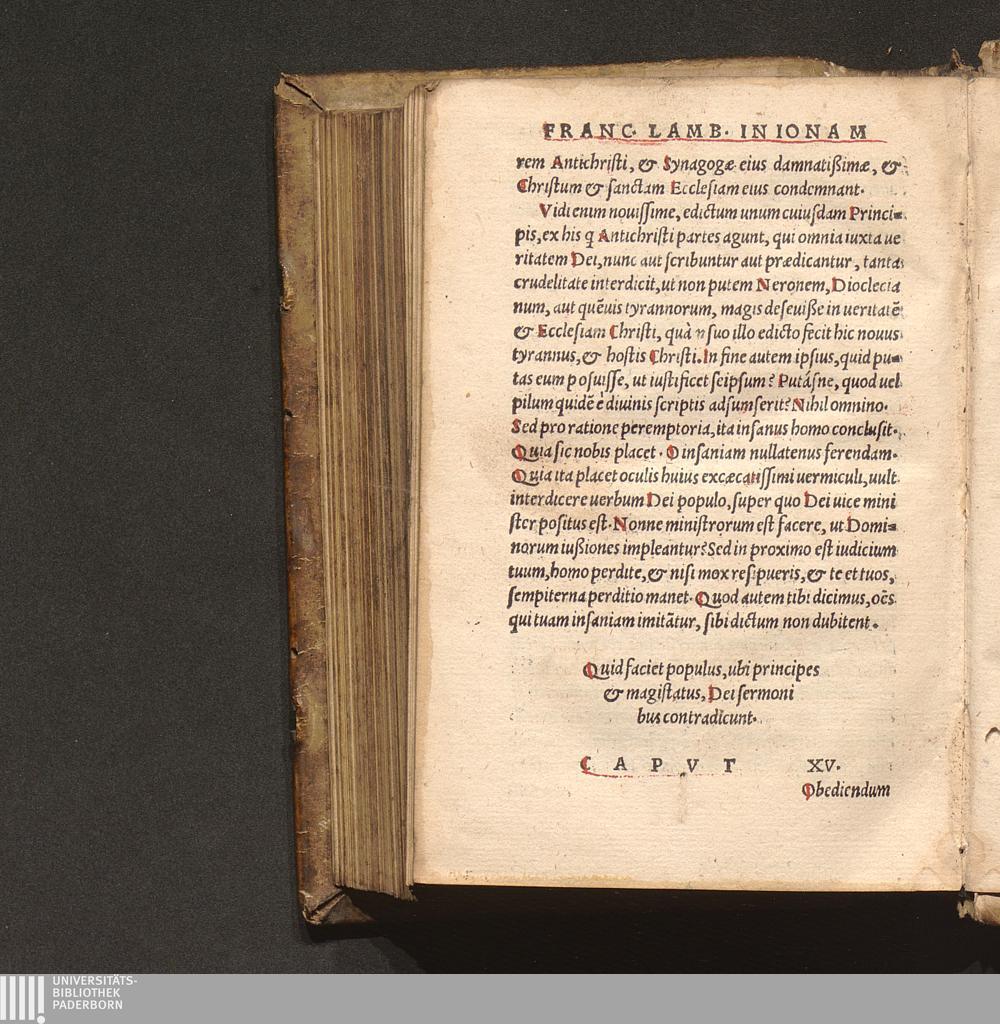 FRANC. LAMB. IN IONAM
rem Antichristi, & Synagogæ eius damnatißimæ, &
Christum & sanctam Ecclesiam eius condemnant.
Vidi enim nouissime, edictum unum cuiusdam Princi=
pis, ex his q Antichristi partes agunt, qui omnia iuxta ue
ritatem Dei, nunc aut scribuntur aut prædicantur, tanta
crudelitate interdicit, ut non putem Neronem, Dioclecia
num, aut quēuis tyrannorum, magis deseuiße in ueritatē
& Ecclesiam Christi, quà n suo illo edicto fecit hic nouus
tyrannus, & hostis Christi. In fine autem ipsius, quid pu=
tas eum posuisse, ut iustificet seipsum? Putásne, quod uel
pilum quidē è diuinis scriptis adsumserit? Nihil omnino.
Sed pro ratione peremptoria, ita insanus homo conclusit.
Quia sic nobis placet. O insaniam nullatenus ferendam.
Quia ita placet oculis huius excæcatissimi uermiculi, uult
interdicere uerbum Dei populo, super quo Dei uice mini
ster positus est. Nonne ministrorum est facere, ut Domi=
norum iußiones impleantur? Sed in proximo est iudicium
tuum, homo perdite, & nisi mox resipueris, & te et tuos,
sempiterna perditio manet. Quod autem tibi dicimus, oēs
qui tuam insaniam imitātur, sibi dictum non dubitent.
Quid faciet populus, ubi principes
& magistatus, Dei sermoni
bus contradicunt.
CAPVT XV.
Obediendum
UNIVERSITÄTS-
BIBLIOTHEK
PADERBORN